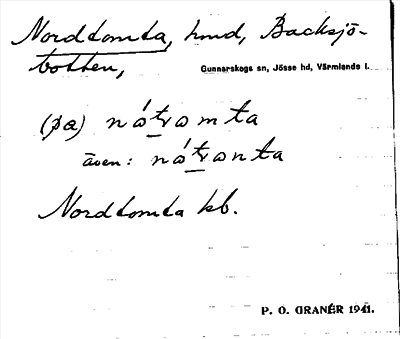 Nordtomta, hmd, Backsjö-
botten,
Gunnarskogs sn, Jösse hd, Värmlands l.
(pa) nótromta
även: nótronta
Nordtomta kb.
P. O. GRANÉR 1941.